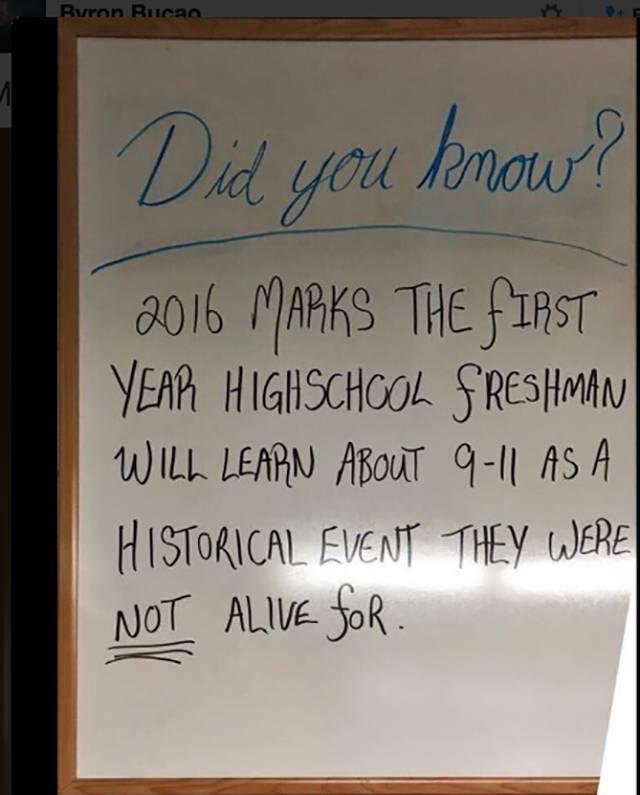 Byron Bucao
Did you know?
2016 MARKS THE FIRST
YEAR HIGHSCHOOL FRESHMAN
WILL LEARN ABOUT 9-11 AS A
HISTORICAL EVENT THEY WERE
NOT ALIVE FOR.